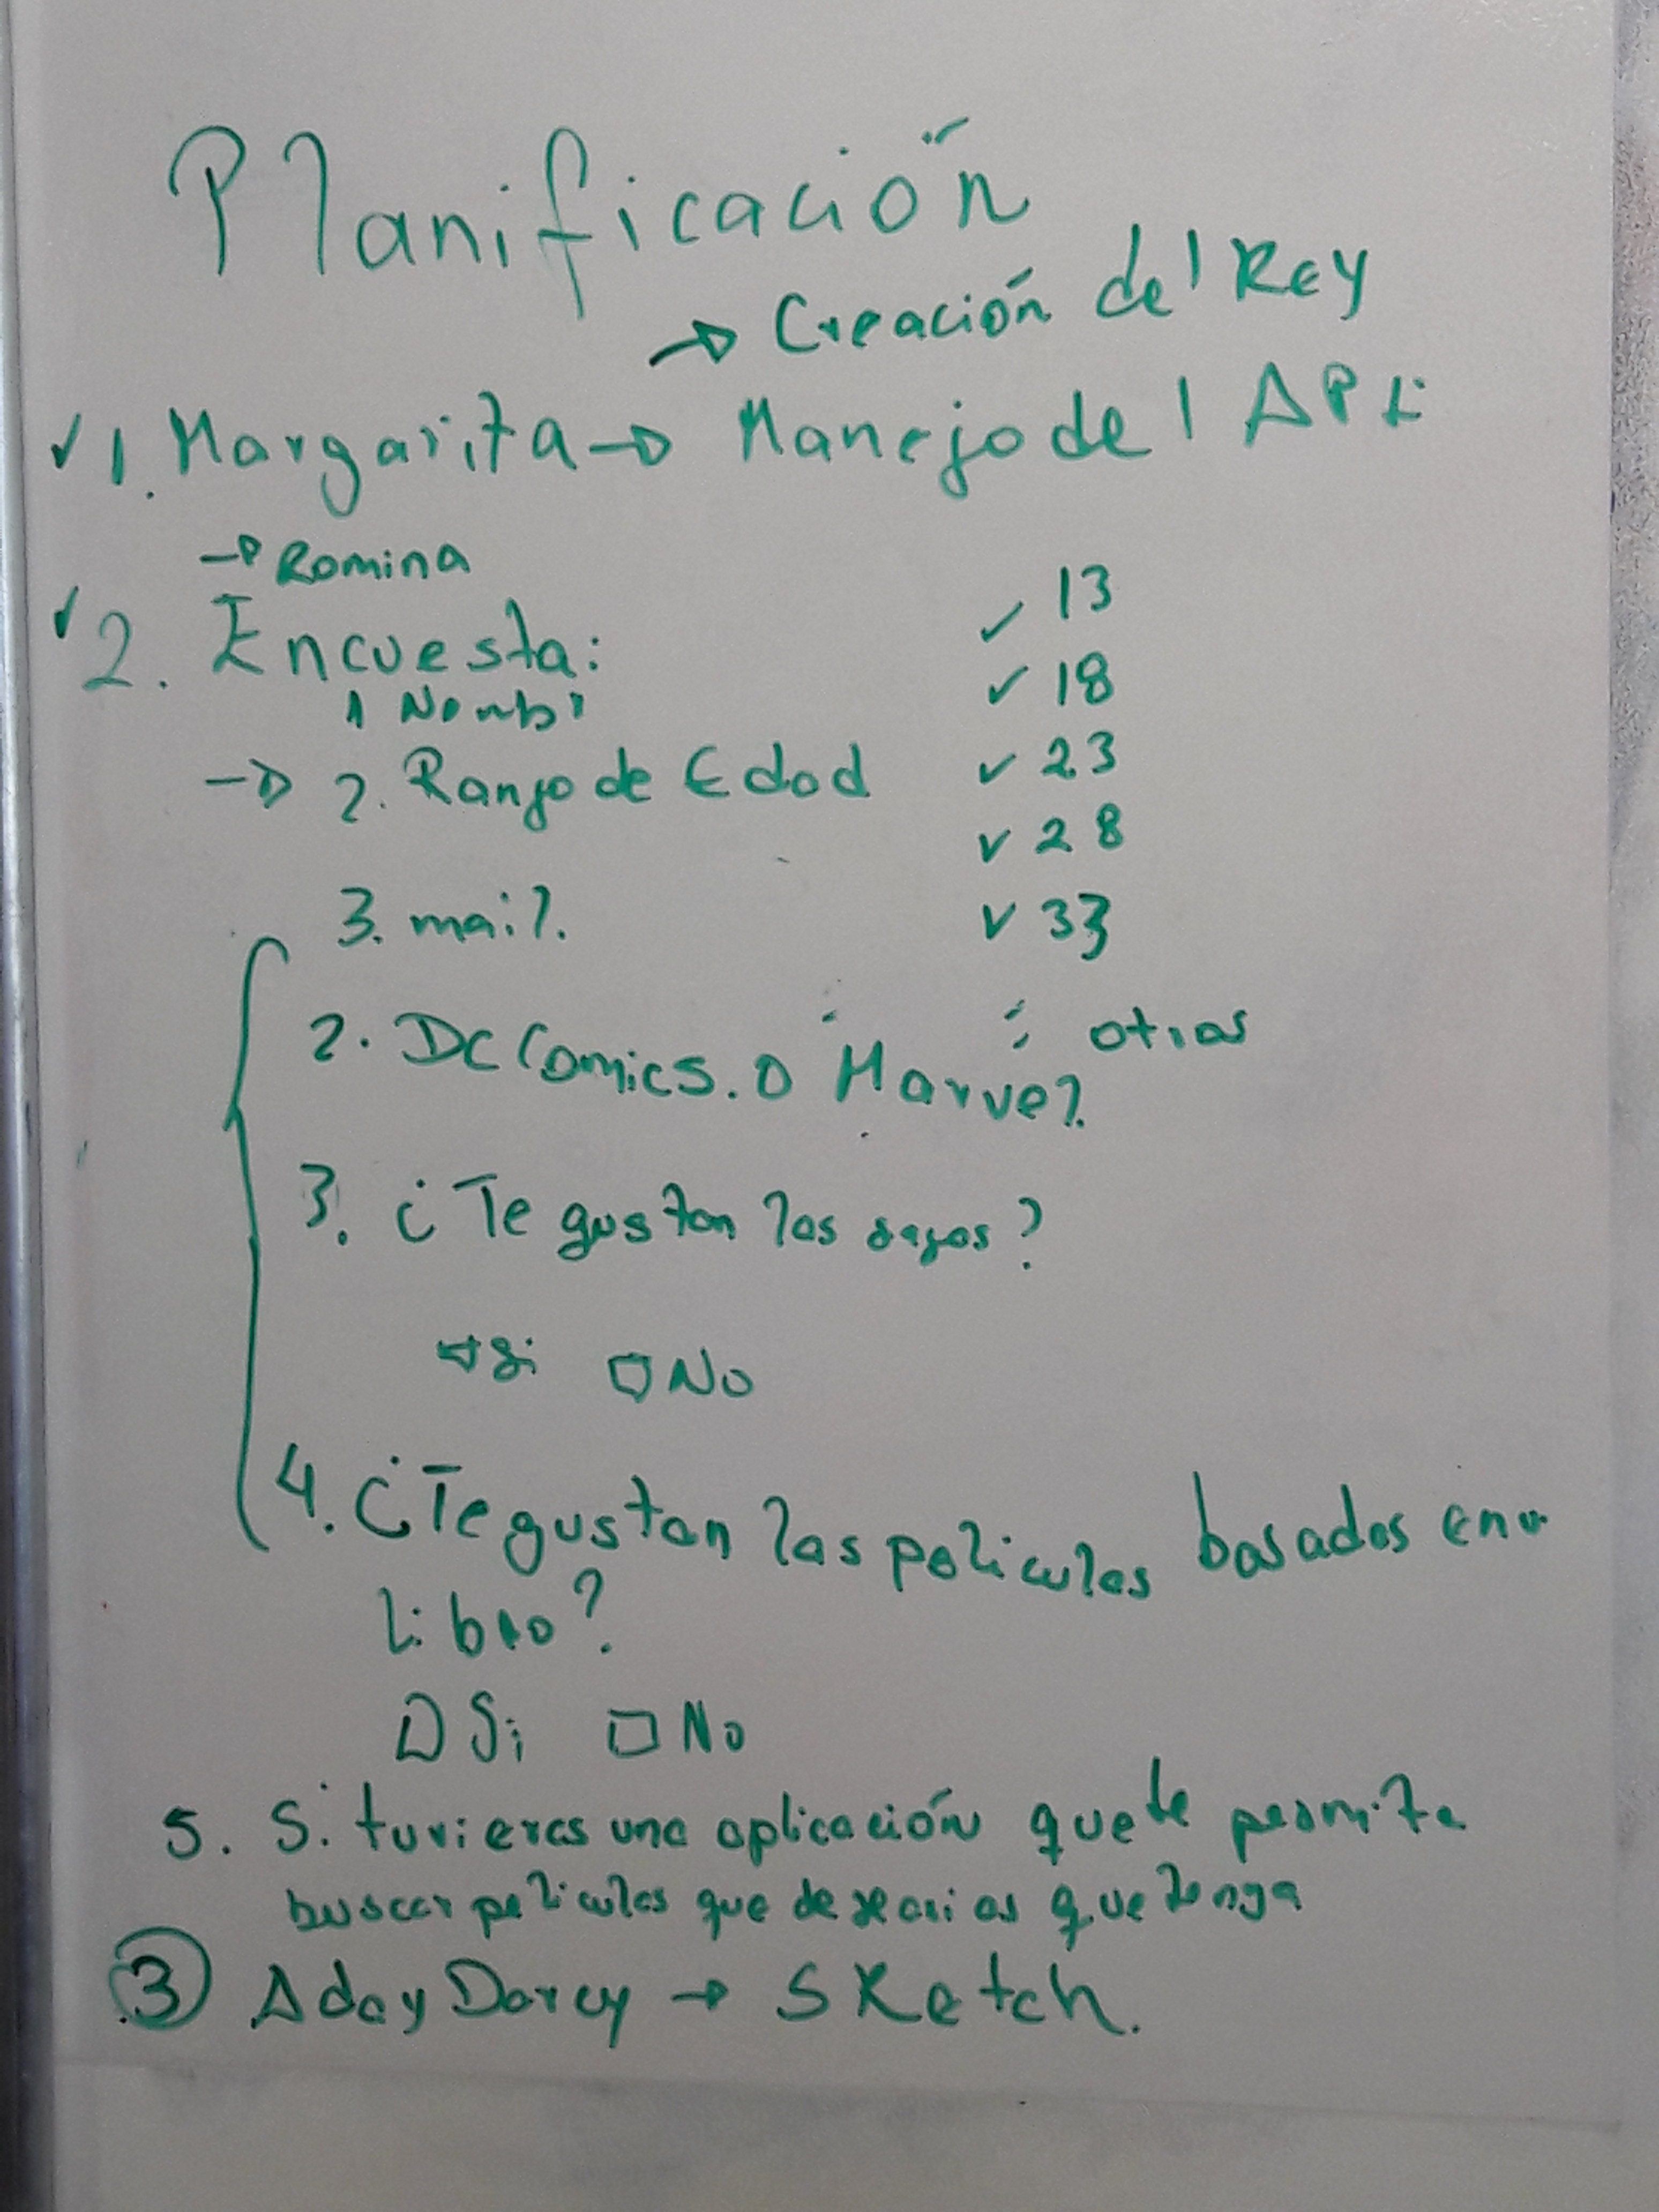 Planificación
→ Creación del Rey
✓ 1. Margarita → Manejo del API
→ Romina
✓ 2. Encuesta:
1 Nombr
→ 2. Rango de Edad
✓ 13
✓ 18
✓ 23
✓ 28
✓ 33
3. mail.
2. DC Comics. o Marvel otras
3. ¿Te gustan las sagas?
□ Si □ No
4. ¿Te gustan las peliculas basadas en
libro?
□ Si □ No
5. Si tuvieras una aplicación que te permita
buscar peliculas que desearias que tenga
③ Ada y Darcy → Sketch.